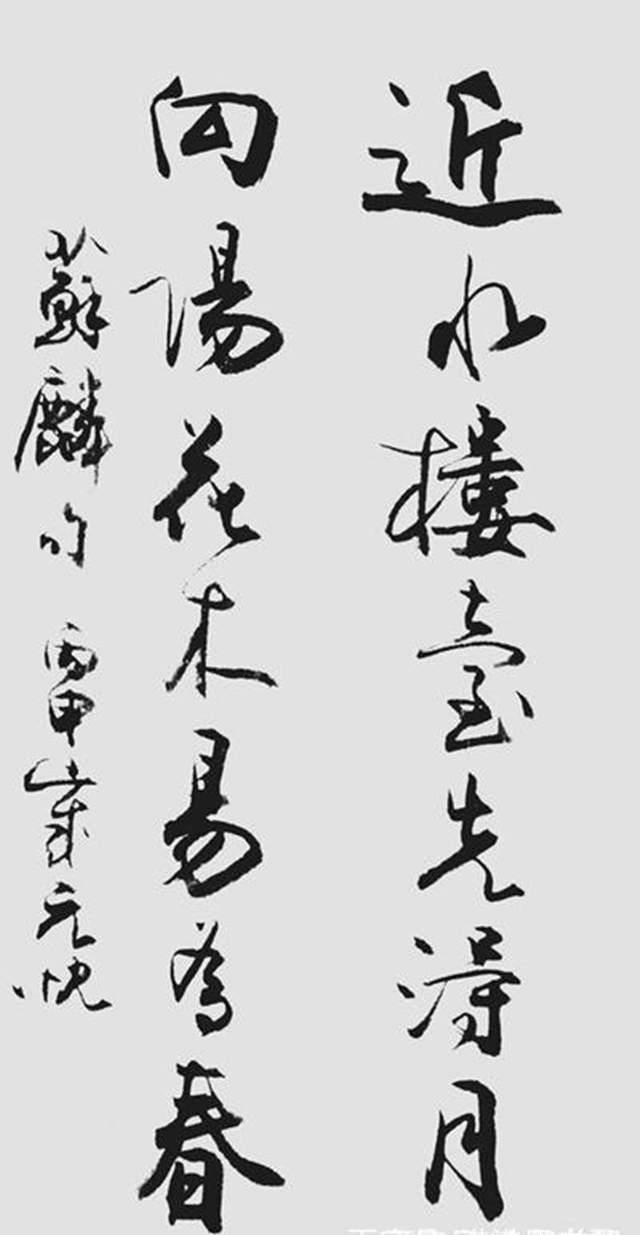 近水樓臺先得月
向陽花木易為春
蘇麟句 丙申歲元悅